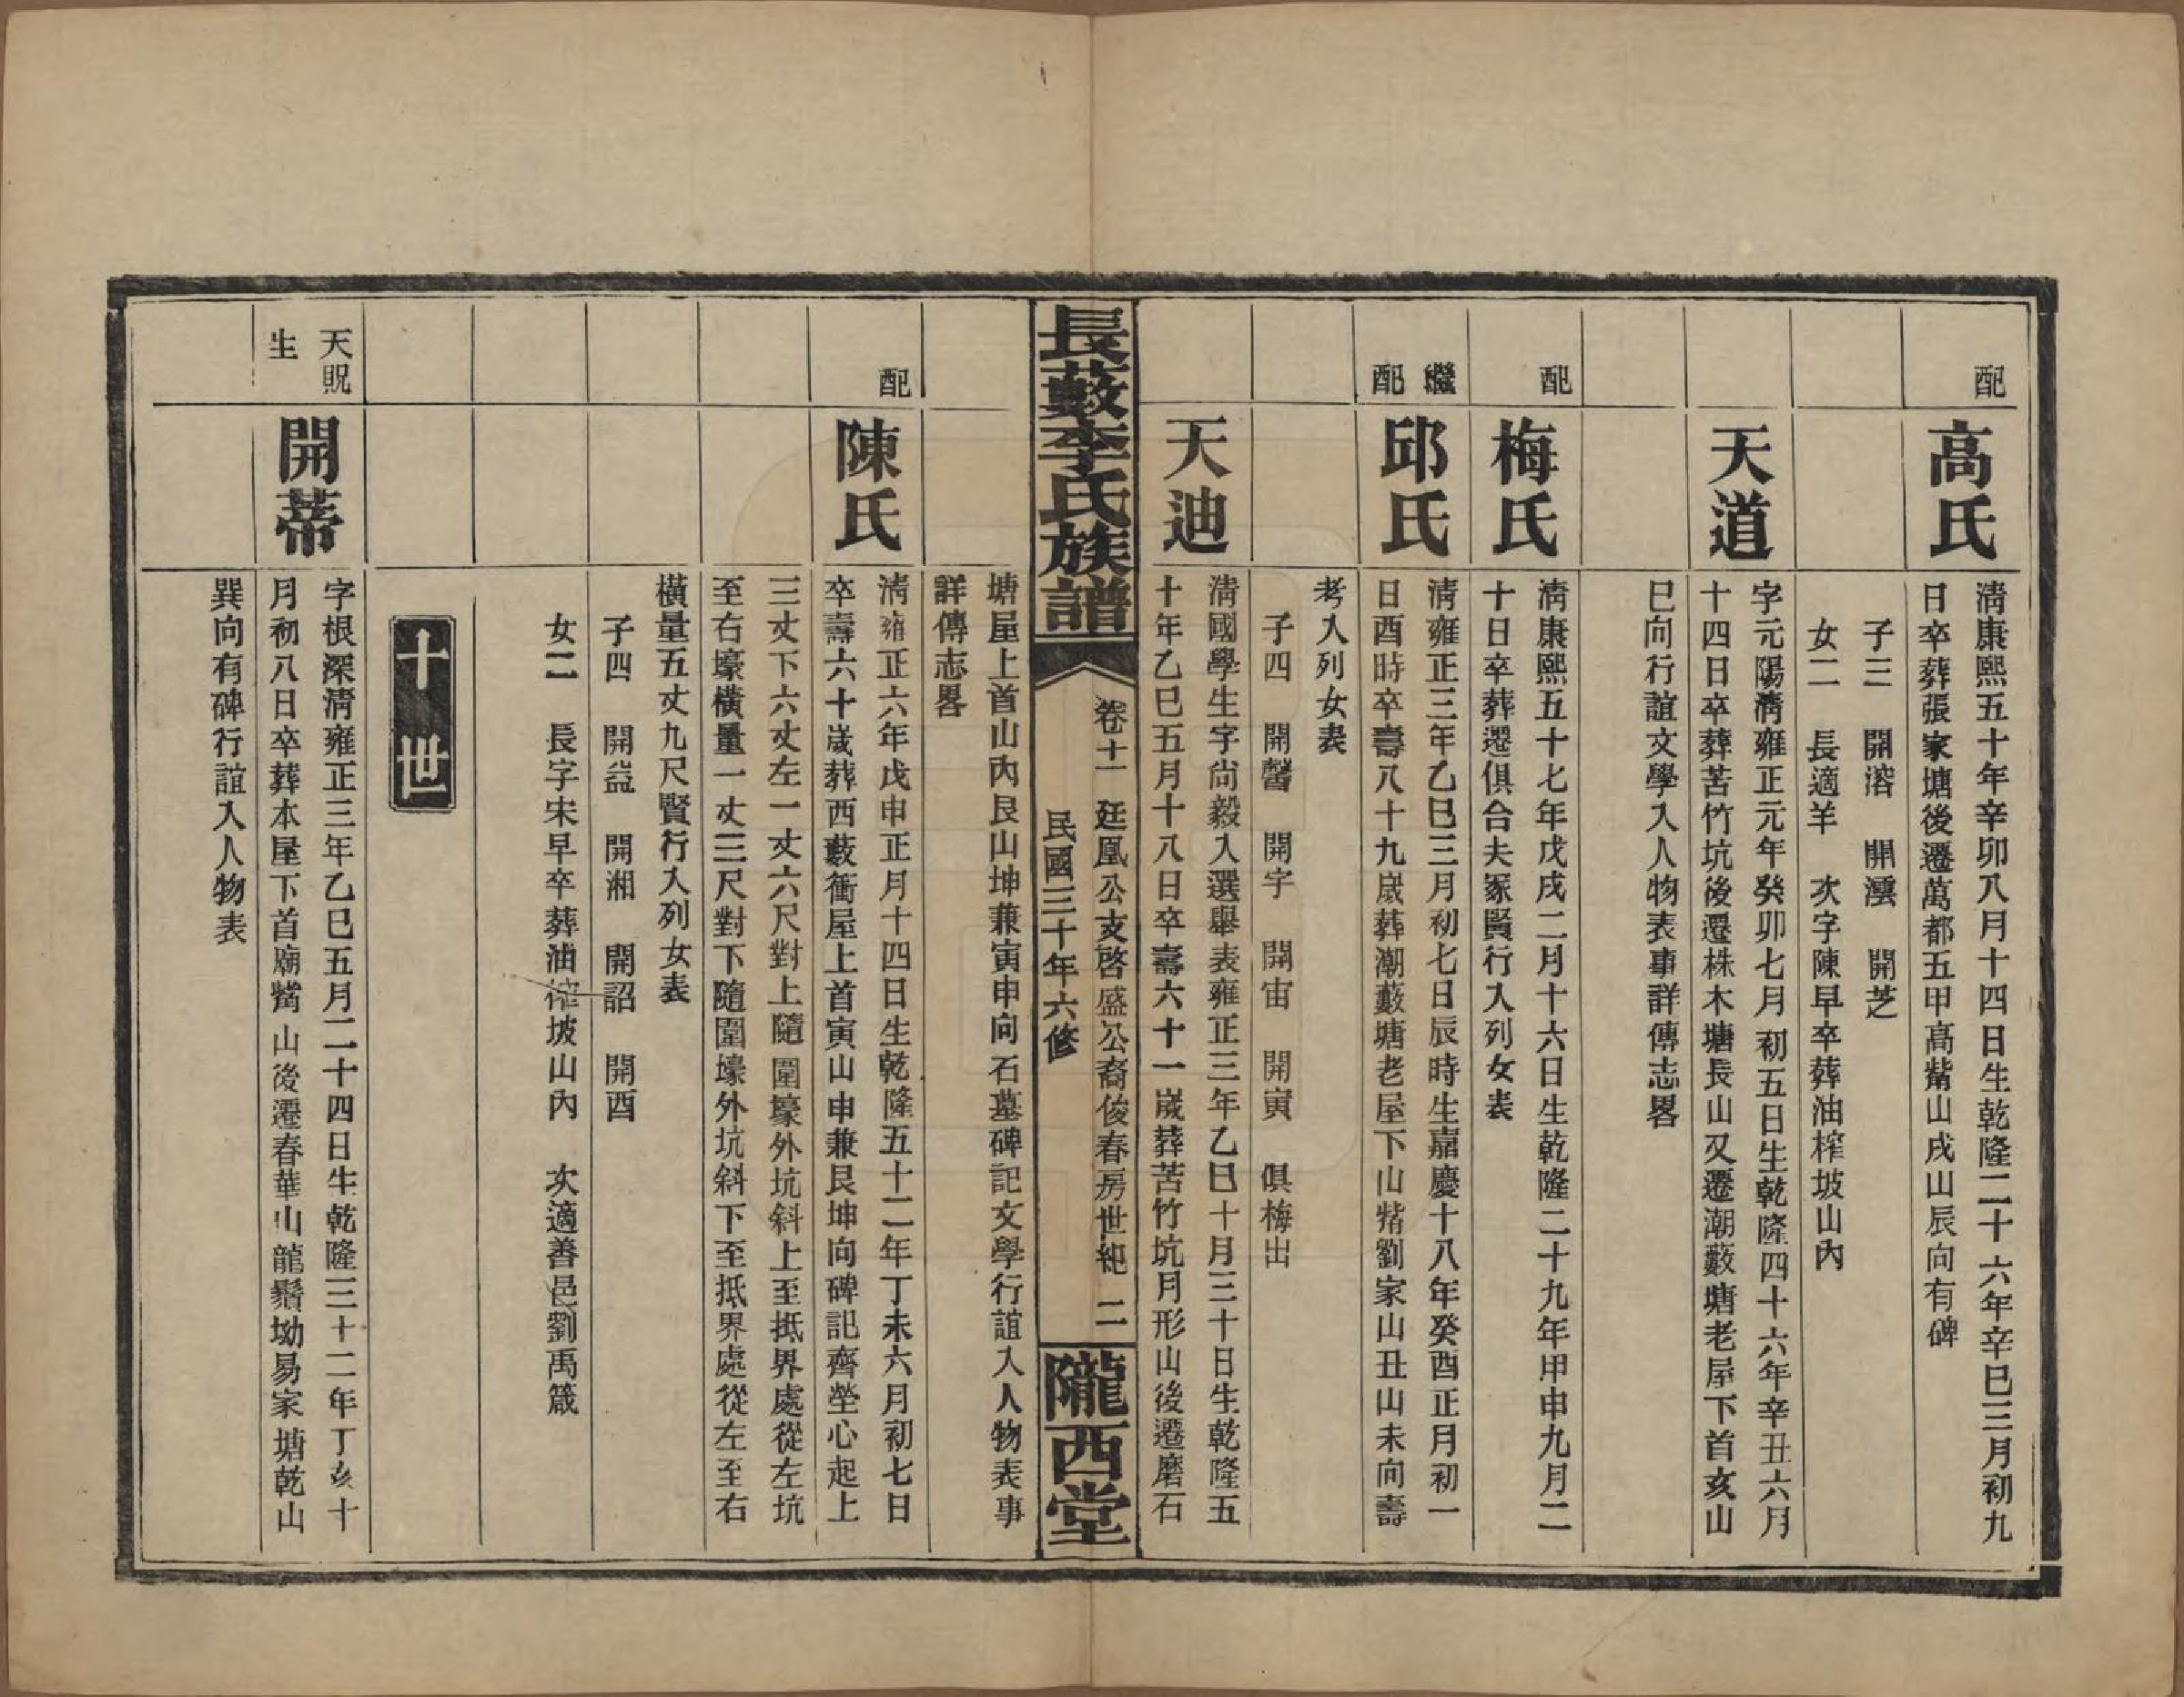 配
高氏
淸康熙五十年辛卯八月十四日生乾隆二十六年辛巳三月初九
日卒葬張家塘後遷萬都五甲高觜山戌山辰向有碑
子三 開溶 開澐 開芝
女二 長適羊 次字陳早卒葬油榨坡山內
天道
字元陽淸雍正元年癸卯七月初五日生乾隆四十六年辛丑六月
十四日卒葬苦竹坑後遷株木塘長山又遷潮藪塘老屋下首亥山
巳向行誼文學入人物表事詳傳志畧
配
梅氏
淸康熙五十七年戊戌二月十六日生乾隆二十九年甲申九月二
十日卒葬遷俱合夫冢賢行入列女表
繼
配
邱氏
淸雍正三年乙巳三月初七日辰時生嘉慶十八年癸酉正月初一
日酉時卒壽八十九歲葬潮藪塘老屋下山觜劉家山丑山未向壽
考入列女表
子四 開馨 開字 開宙 開寅 俱梅出
天迪
淸國學生字尙毅入選舉表雍正三年乙巳十月三十日生乾隆五
十年乙巳五月十八日卒壽六十一歲葬苦竹坑月形山後遷磨石
長藪李氏族譜
卷十一 廷凰公支啓盛公裔俊春房世紀 二
民國三十年六修
隴西堂
塘屋上首山內艮山坤兼寅申向石墓碑記文學行誼入人物表事
詳傳志畧
配
陳氏
淸雍正六年戊申正月十四日生乾隆五十二年丁未六月初七日
卒壽六十歲葬西藪衝屋上首寅山申兼艮坤向碑記齊塋心起上
三丈下六丈左一丈六尺對上隨圍壕外坑斜上至抵界處從左坑
至右壕橫量一丈三尺對下隨圍壕外坑斜下至抵界處從左至右
橫量五丈九尺賢行入列女表
子四 開益 開湘 開詔 開酉
女二 長字宋早卒葬油榨坡山內 次適善邑劉禹箴
十世
天貺
生
開蒂
字根深淸雍正三年乙巳五月二十四日生乾隆三十二年丁亥十
月初八日卒葬本屋下首廟觜山後遷春華山龍鬚坳易家塘乾山
巽向有碑行誼入人物表